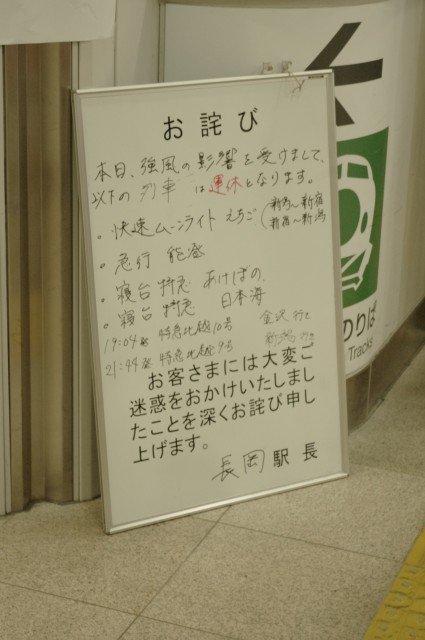 お詫び
本日、強風の影響を受けまして、
以下の列車は運休となります。
・快速ムーンライトえちご(新潟〜新宿
新宿〜新潟)
・急行 能登
・寝台特急 あけぼの
・寝台特急 日本海
19:04発 特急北越10号 金沢行き
21:44発 特急北越9号 新潟行き
お客さまには大変ご
迷惑をおかけいたしまし
たことを深くお詫び申し
上げます。
長岡駅長
のりば
Tracks